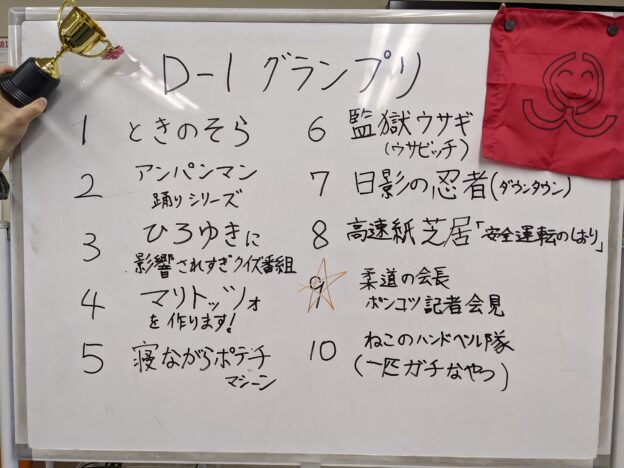 D-1 グランプリ
1 ときのそら
2 アンパンマン
踊りシリーズ
3 ひろゆきに
影響されすぎクイズ番組
4 マリトッツォ
を作ります!
5 寝ながらポテチ
マシーン
6 監獄ウサギ
(ウサビッチ)
7 日影の忍者(ダウンタウン)
8 高速紙芝居「安全運転のしおり」
9 柔道の会長
ポンコツ記者会見
10 ねこのハンドベル隊
(一匹ガチなやつ)